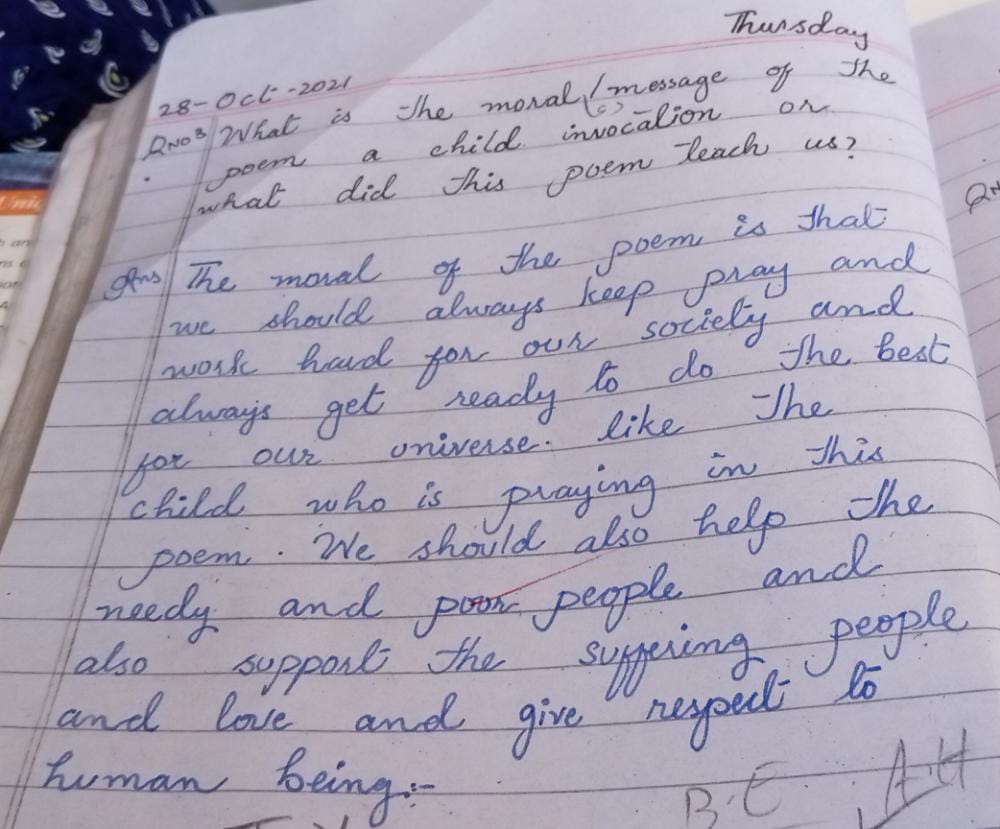 Thursday
28-Oct-2021
QNO3 What is the moral/message of the
poem a child invocation or
what did this poem teach us?
Ans The moral of the poem is that
we should always keep pray and
work hard for our society and
always get ready to do the best
for our universe. like the
child who is praying in this
poem. We should also help the
needy and poor people and
also support the suffering people
and love and give respect to
human being:-
B.E A.H